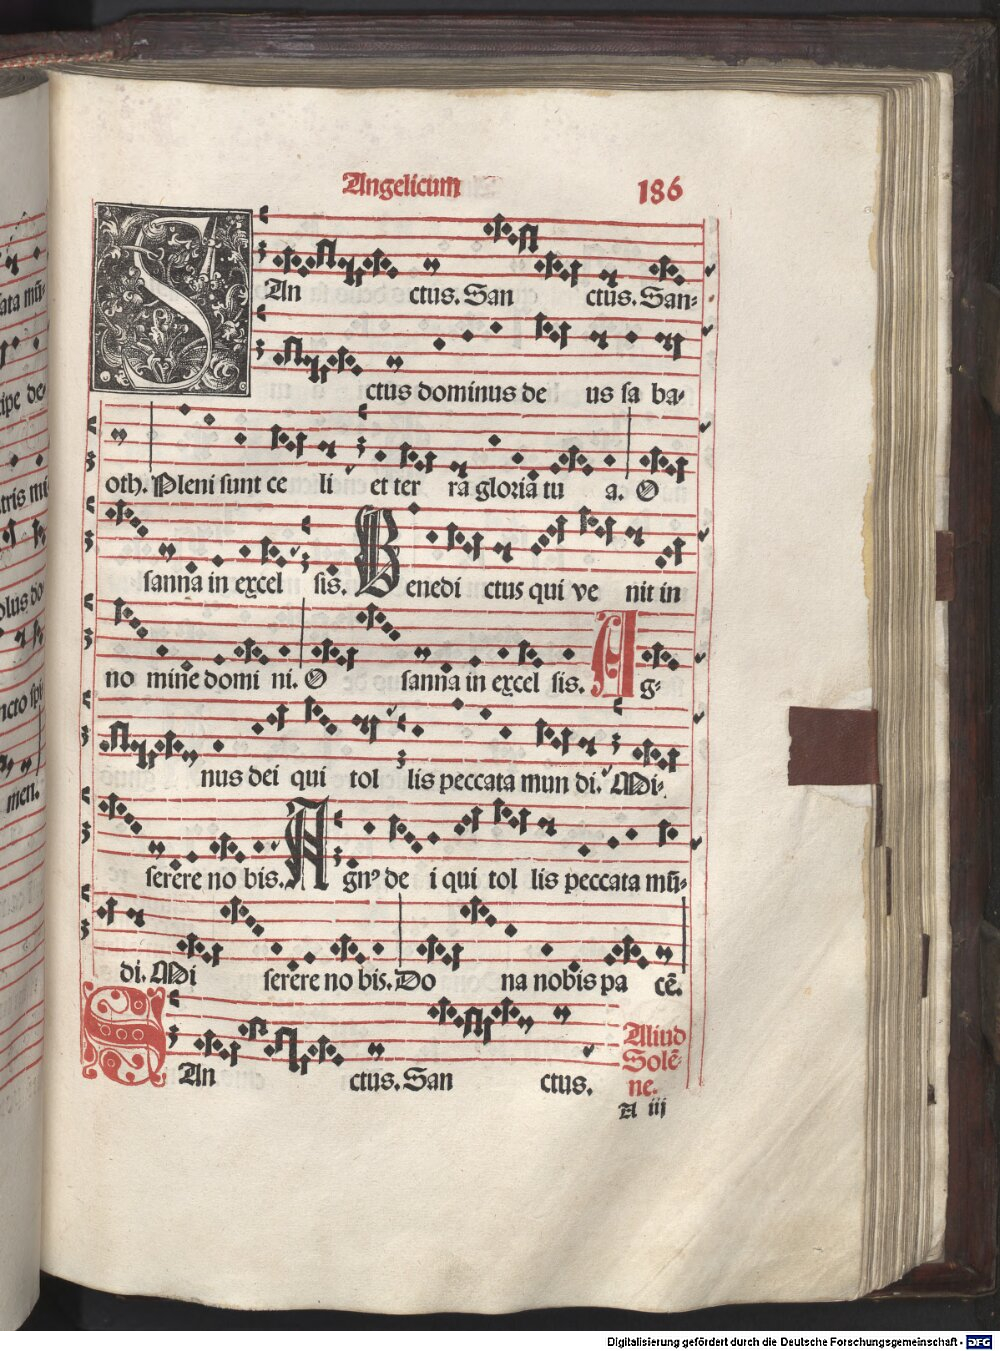 Angelicum 186
SAn ctus. San ctus. San-
ctus dominus de us sa ba-
oth. Pleni sunt ce li et ter ra gloria tu a. O
sanna in excel sis. Benedi ctus qui ve nit in
no mine domi ni. O sanna in excel sis. Ag-
nus dei qui tol lis peccata mun di. Mi-
serere no bis. Agnꝰ de i qui tol lis peccata mū-
di. Mi serere no bis. Do na nobis pa cē.
SAn ctus. San ctus.
Aliud
Solē-
ne.
A iij
ata mū-
cipe de-
tris mi
olus do
ncto spi
men.
Digitalisierung gefördert durch die Deutsche Forschungsgemeinschaft - DFG